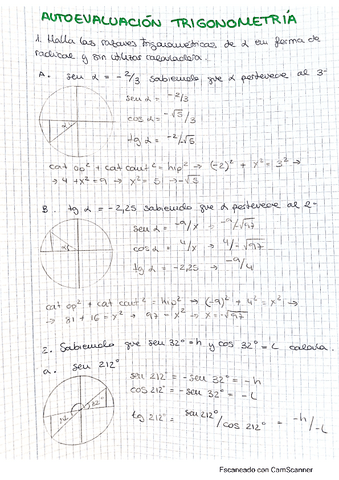 AUTOEVALUACIÓN TRIGONOMETRÍA
1. Halla las razones trigonométricas de α en forma de
radical y sin utilizar calculadora.
A. sen α = -2/3 sabiendo que α pertenece al 3º
sen α = -2/3
cos α = -√5/3
tg α = -2/√5
cat op² + cat cont² = hip² → (-2)² + x² = 3² →
→ 4 + x² = 9 → x² = 5 → -√5
B. tg α = -2,25 sabiendo que α pertenece al 2º
sen α = -9/x → -9/-√97
cos α = 4/x → 4/-√97
tg α = -2,25 → -9/4
cat op² + cat cont² = hip² → (-9)² + 4² = x² →
→ 81 + 16 = x² → 97 = x² → x = -√97
2. Sabiendo que sen 32° = h y cos 32° = L calcula.
a. sen 212°
sen 212° = -sen 32° = -h
cos 212° = -sen 32° = -L
32°
tg 212° = sen 212°/cos 212° = -h/-L
Escaneado con CamScanner